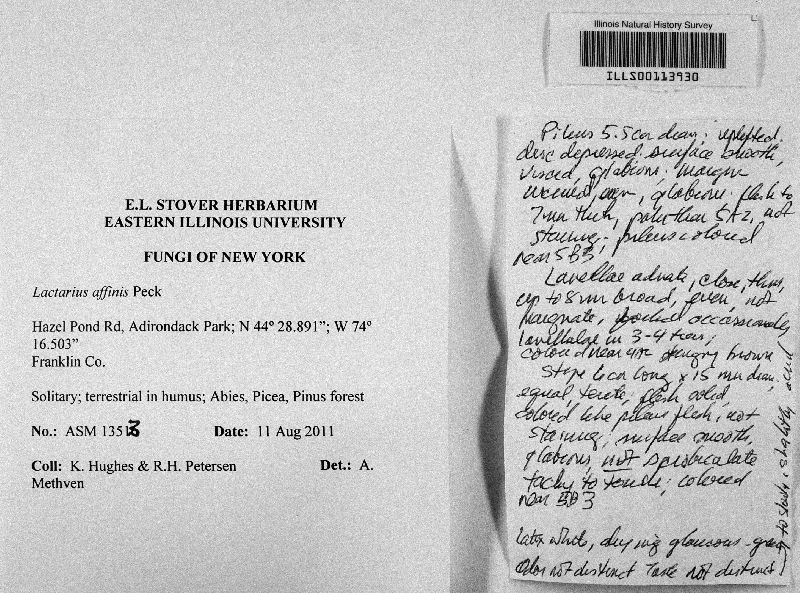 Illinois Natural History Survey
ILLS00113930
E.L. STOVER HERBARIUM
EASTERN ILLINOIS UNIVERSITY
FUNGI OF NEW YORK
Lactarius affinis Peck
Hazel Pond Rd, Adirondack Park; N 44º 28.891”; W 74º
16.503”
Franklin Co.
Solitary; terrestrial in humus; Abies, Picea, Pinus forest
No.: ASM 13513 Date: 11 Aug 2011
Coll: K. Hughes & R.H. Petersen Det.: A.
Methven
Pileus 5.5cm diam; uplifted.
disc depressed. surface smooth,
viscid, glabrous; margin
glabrous. flesh to
7mm thick, paler than 5A2, not
staining; pileus colored
near 5B3;
Lamellae adnate, close, thin,
up to 8mm broad, even, not
marginate, forked occassionally
lamellulae in 3-4 tiers;
colored near brown
Stipe long x 15 mm diam,
equal, terete; flesh solid,
colored like pileus flesh, not
staining; surface smooth,
glabrous, not scrobiculate
tacky to touch; colored
near 5B3
Latex white, drying glaucous-green
Odor not distinct Taste not distinct
to slowly & slightly acrid